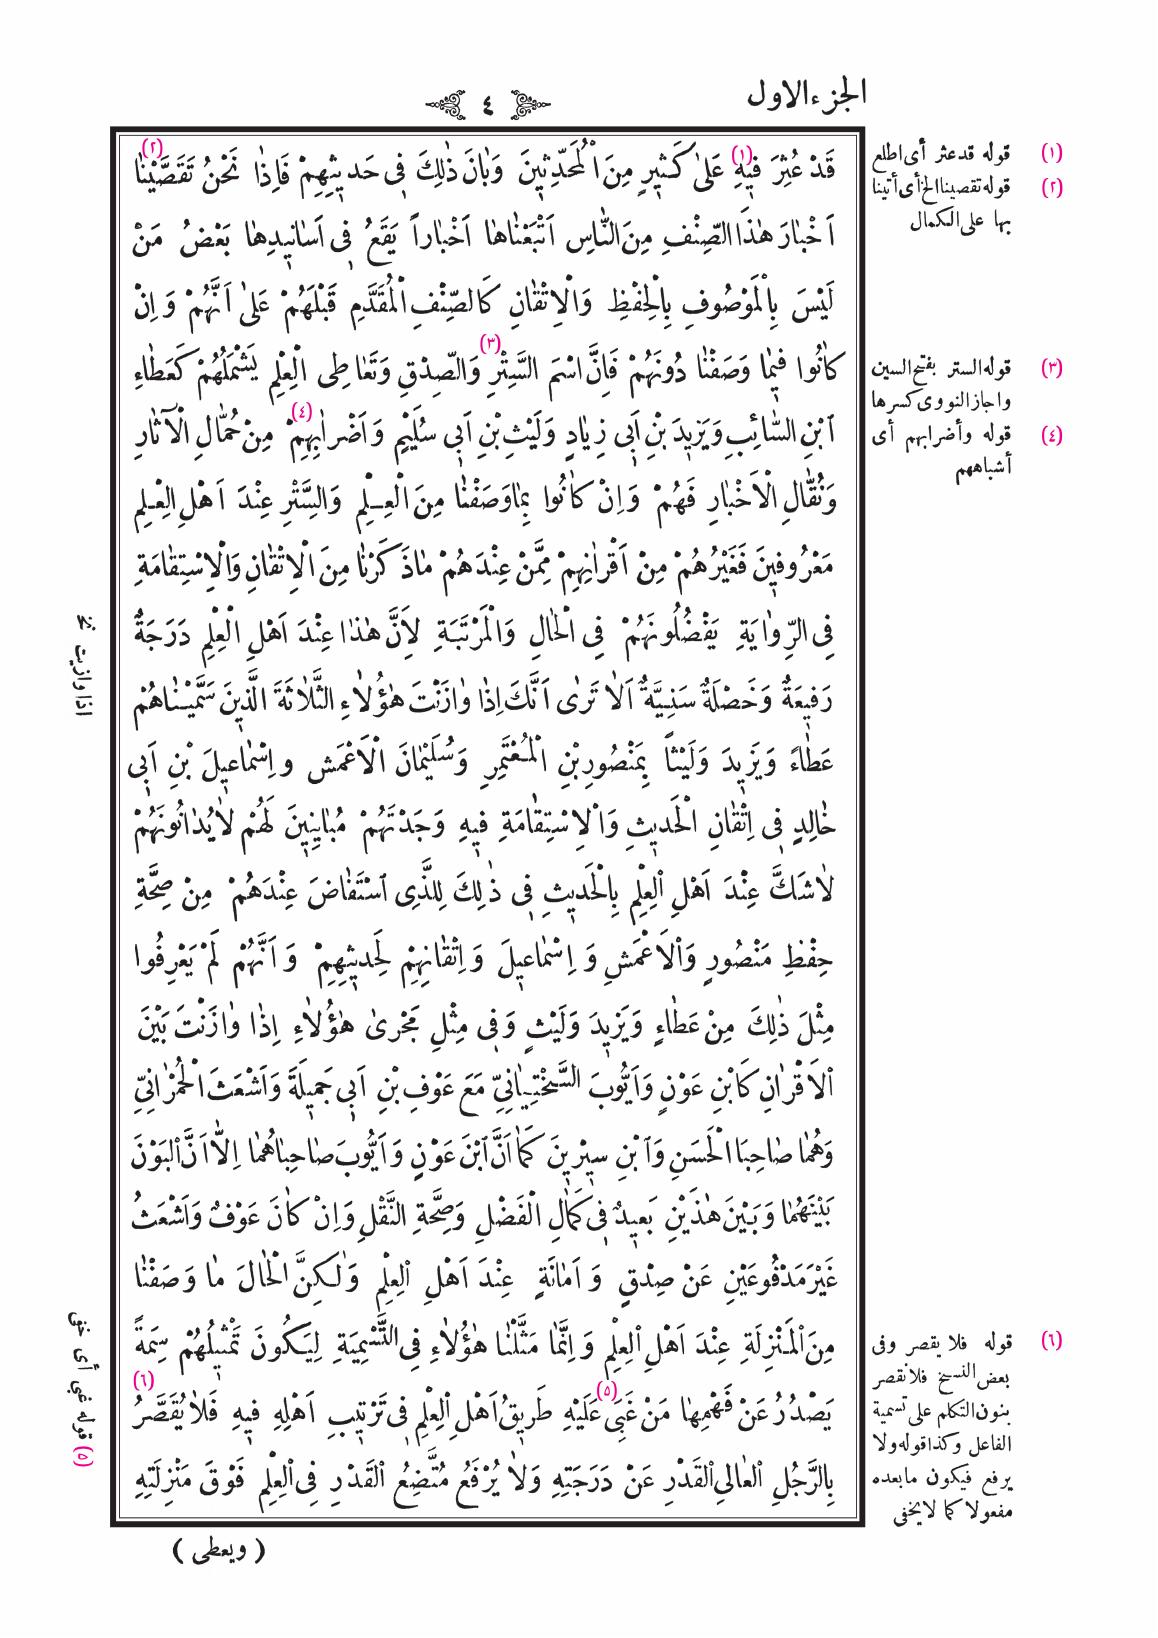 الجزء الاول
٤
قَدْ عُثِرَ فيهِ (١) عَلىٰ كَثيرٍ مِنَ الْمُحَدِّثينَ وَبَانَ ذٰلِكَ فى حَديثِهِمْ فَاِذَا نَحْنُ تَقَصَّيْنَا (٢)
اَخْبارَ هٰذَا الصِّنْفِ مِنَ النَّاسِ اَتْبَعْنَاهَا اَخْباراً يَقَعُ فى اَسَانيدِهَا بَعْضُ مَنْ
لَيْسَ بِالْمَوْصُوفِ بِالْحِفْظِ وَالْاِتْقَانِ كَالصِّنْفِ الْمُقَدَّمِ قَبْلَهُمْ عَلىٰ اَنَّهُمْ وَاِنْ
كَانُوا فيمَا وَصَفْنَا دُونَهُمْ فَاِنَّ اسْمَ السَّتْرِ (٣) وَالصِّدْقِ وَتَعَاطِى الْعِلْمِ يَشْمَلُهُمْ كَعَطَاءِ
ابْنِ السَّائِبِ وَيَزيدَ بْنِ اَبى زِيَادٍ وَلَيْثِ بْنِ اَبى سُلَيْمٍ وَاَضْرَابِهِمْ (٤) مِنْ حُمَّالِ الْآثَارِ
وَنُقَّالِ الْاَخْبَارِ فَهُمْ وَاِنْ كَانُوا بِمَا وَصَفْنَا مِنَ الْعِلْمِ وَالسَّتْرِ عِنْدَ اَهْلِ الْعِلْمِ
مَعْرُوفينَ فَغَيْرُهُمْ مِنْ اَقْرَانِهِمْ مِمَّنْ عِنْدَهُمْ مَاذَكَرْنَا مِنَ الْاِتْقَانِ وَالْاِسْتِقَامَةِ
فِى الرِّوَايَةِ يَفْضُلُونَهُمْ فِى الْحَالِ وَالْمَرْتَبَةِ لِاَنَّ هٰذَا عِنْدَ اَهْلِ الْعِلْمِ دَرَجَةٌ
رَفيعَةٌ وَخَصْلَةٌ سَنِيَّةٌ اَلَا تَرٰى اَنَّكَ اِذَا وَازَنْتَ هٰؤُلَاءِ الثَّلَاثَةَ الَّذينَ سَمَّيْنَاهُمْ
عَطَاءً وَيَزيدَ وَلَيْثاً بِمَنْصُورِبْنِ الْمُعْتَمِرِ وَسُلَيْمَانَ الْاَعْمَشِ وَاِسْمَاعيلَ بْنِ اَبى
خَالِدٍ فى اِتْقَانِ الْحَديثِ وَالْاِسْتِقَامَةِ فيهِ وَجَدْتَهُمْ مُبَايِنينَ لَهُمْ لَايُدَانُونَهُمْ
لَاشَكَّ عِنْدَ اَهْلِ الْعِلْمِ بِالْحَديثِ فى ذٰلِكَ لِلَّذِى اسْتَفَاضَ عِنْدَهُمْ مِنْ صِحَّةِ
حِفْظِ مَنْصُورٍ وَالْاَعْمَشِ وَاِسْمَاعيلَ وَاِتْقَانِهِمْ لِحَديثِهِمْ وَاَنَّهُمْ لَمْ يَعْرِفُوا
مِثْلَ ذٰلِكَ مِنْ عَطَاءٍ وَيَزيدَ وَلَيْثٍ وَفى مِثْلِ مَجْرىٰ هٰؤُلَاءِ اِذَا وَازَنْتَ بَيْنَ
الْاَقْرَانِ كَابْنِ عَوْنٍ وَاَيُّوبَ السَّخْتِيَانِىِّ مَعَ عَوْفِ بْنِ اَبى جَميلَةَ وَاَشْعَثَ الْحُمْرَانِىِّ
وَهُمَا صَاحِبَا الْحَسَنِ وَابْنِ سيرينَ كَمَا اَنَّ ابْنَ عَوْنٍ وَاَيُّوبَ صَاحِبَاهُمَا اِلَّا اَنَّ الْبَوْنَ
بَيْنَهُمَا وَبَيْنَ هٰذَيْنِ بَعيدٌ فى كَمَالِ الْفَضْلِ وَصِحَّةِ النَّقْلِ وَاِنْ كَانَ عَوْفٌ وَاَشْعَثُ
غَيْرَ مَدْفُوعَيْنِ عَنْ صِدْقٍ وَاَمَانَةٍ عِنْدَ اَهْلِ الْعِلْمِ وَلٰكِنَّ الْحَالَ مَا وَصَفْنَا
مِنَ الْمَنْزِلَةِ عِنْدَ اَهْلِ الْعِلْمِ وَاِنَّمَا مَثَّلْنَا هٰؤُلَاءِ فِى التَّسْمِيَةِ لِيَكُونَ تَمْثيلُهُمْ سِمَةً
يَصْدُرُ عَنْ فَهْمِهَا مَنْ غَبِىَ (٥) عَلَيْهِ طَريقُ اَهْلِ الْعِلْمِ فى تَرْتيبِ اَهْلِهِ فيهِ فَلَا يُقَصَّرُ (٦)
بِالرَّجُلِ الْعَالِى الْقَدْرِ عَنْ دَرَجَتِهِ وَلَا يُرْفَعُ مُتَّضِعُ الْقَدْرِ فِى الْعِلْمِ فَوْقَ مَنْزِلَتِهِ
( ويعطى )
(١) قوله قد عثر أى اطلع
(٢) قوله تقصينا الخ أى أتينا
بها على الكمال
(٣) قوله الستر بفتح السين
واجاز النووى كسرها
(٤) قوله وأضرابهم أى
أشباههم
(٦) قوله فلا يقصر وفى
بعض النسخ فلا نقصر
بنون التكلم على تسمية
الفاعل وكذا قوله ولا
يرفع فيكون مابعده
مفعولا كما لا يخفى
اذا وازيت نخ
(٥) قوله غبى أى خفى